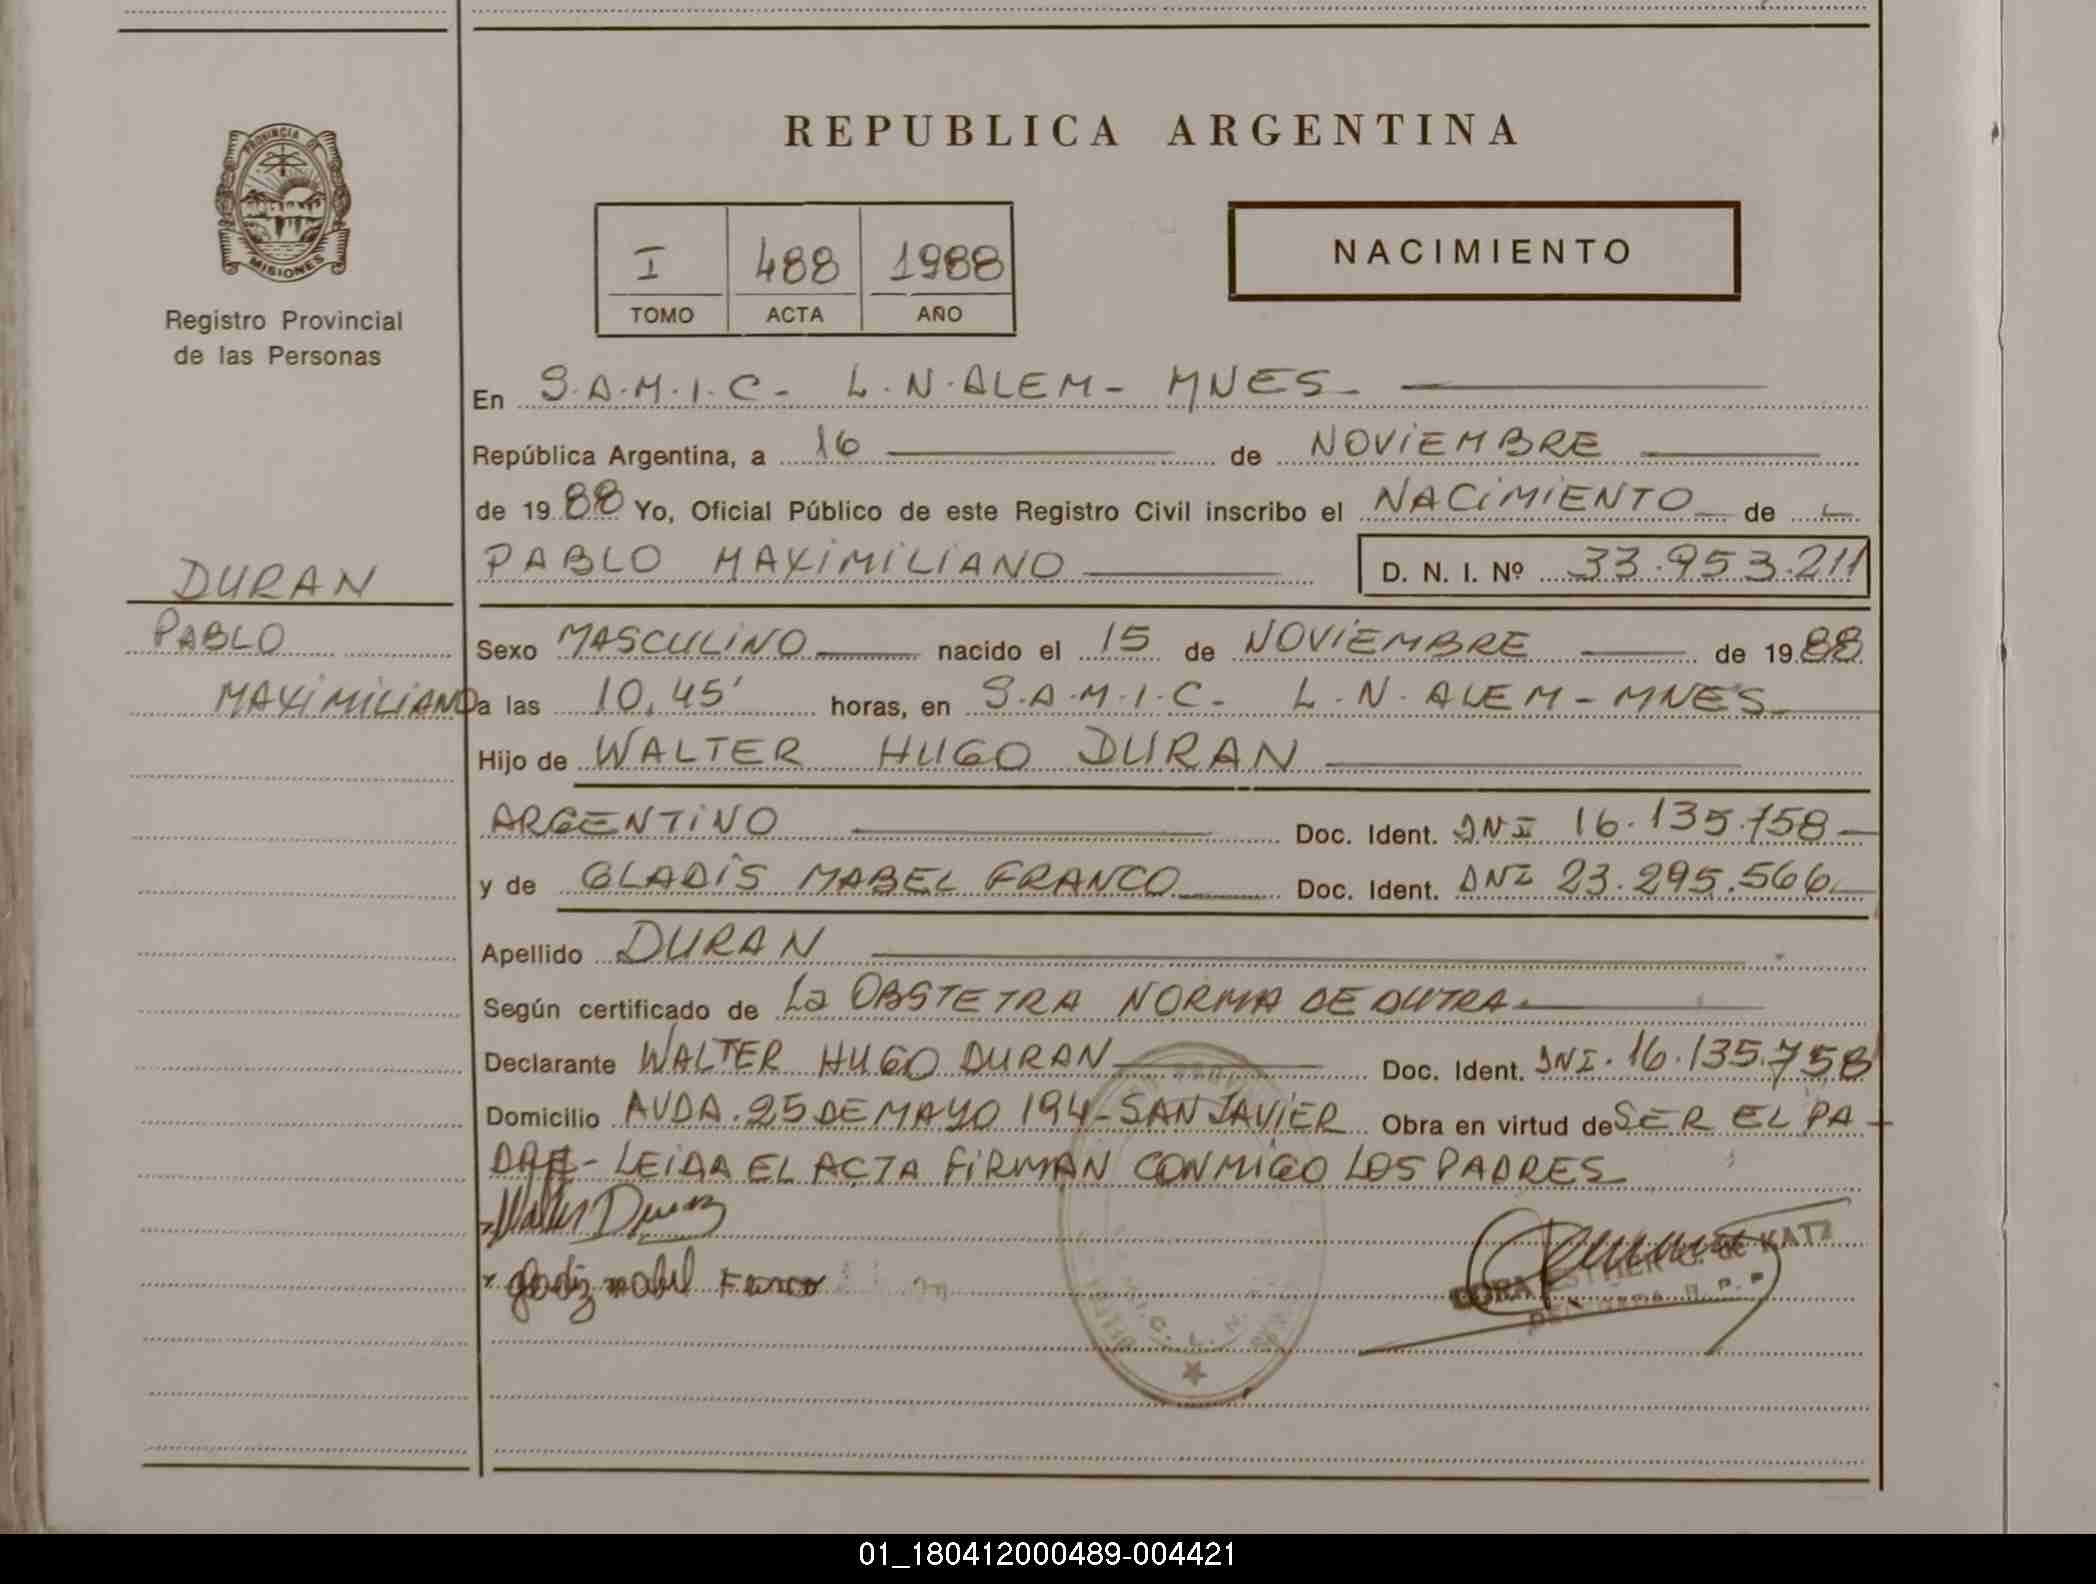 REPUBLICA ARGENTINA
PROVINCIA DE
MISIONES
Registro Provincial
de las Personas
I 488 1988
TOMO ACTA AÑO
NACIMIENTO
En S.A.M.I.C- L.N.ALEM- MNES-
República Argentina, a 16 de NOVIEMBRE
de 1988 Yo, Oficial Público de este Registro Civil inscribo el NACIMIENTO de
PABLO MAXIMILIANO D. N. I. Nº 33.953.211
DURAN
PABLO
MAXIMILIANO
Sexo MASCULINO nacido el 15 de NOVIEMBRE de 1988
a las 10,45' horas, en S.A.M.I.C- L.N. ALEM-MNES-
Hijo de WALTER HUGO DURAN
ARGENTINO Doc. Ident. DNI 16.135.758-
y de GLADIS MABEL FRANCO Doc. Ident. DNI 23.295.566-
Apellido DURAN
Según certificado de La OBSTETRA NORMA DE DUTRA-
Declarante WALTER HUGO DURAN Doc. Ident. DNI. 16.135.758
Domicilio AVDA.25 DE MAYO 194-SAN JAVIER Obra en virtud de SER EL PA-
DRE-LEIDA EL ACTA FIRMAN CONMIGO LOS PADRES
Walter Duran
gladiz mabel Franco
DORA ESTHER G. de KATZ
01_180412000489-004421